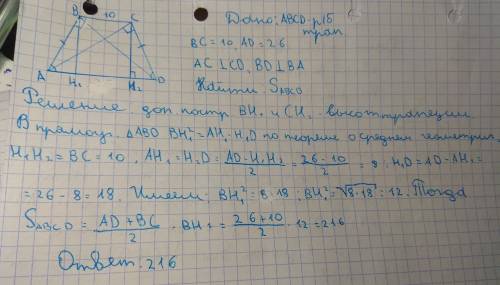 B 10 C
A H₁ H₂ D
Дано: ABCD - р/б
трап.
BC = 10, AD = 26
AC ⊥ CD, BD ⊥ BA
Найти S ABCD
Решение доп. постр BH₁ и CH₂ - высоты трапеции
В прямоуг. △ABD BH₁² = AH₁ · H₁D по теореме о среднем геометрич.
H₁H₂ = BC = 10, AH₁ = H₂D = (AD - H₁H₂)/2 = (26 - 10)/2 = 8; H₁D = AD - AH₁ =
= 26 - 8 = 18. Имеем: BH₁² = 8 · 18; BH₁² = √8·18 = 12. Тогда
S ABCD = (AD + BC)/2 · BH₁ = (26 + 10)/2 · 12 = 216
Ответ: 216